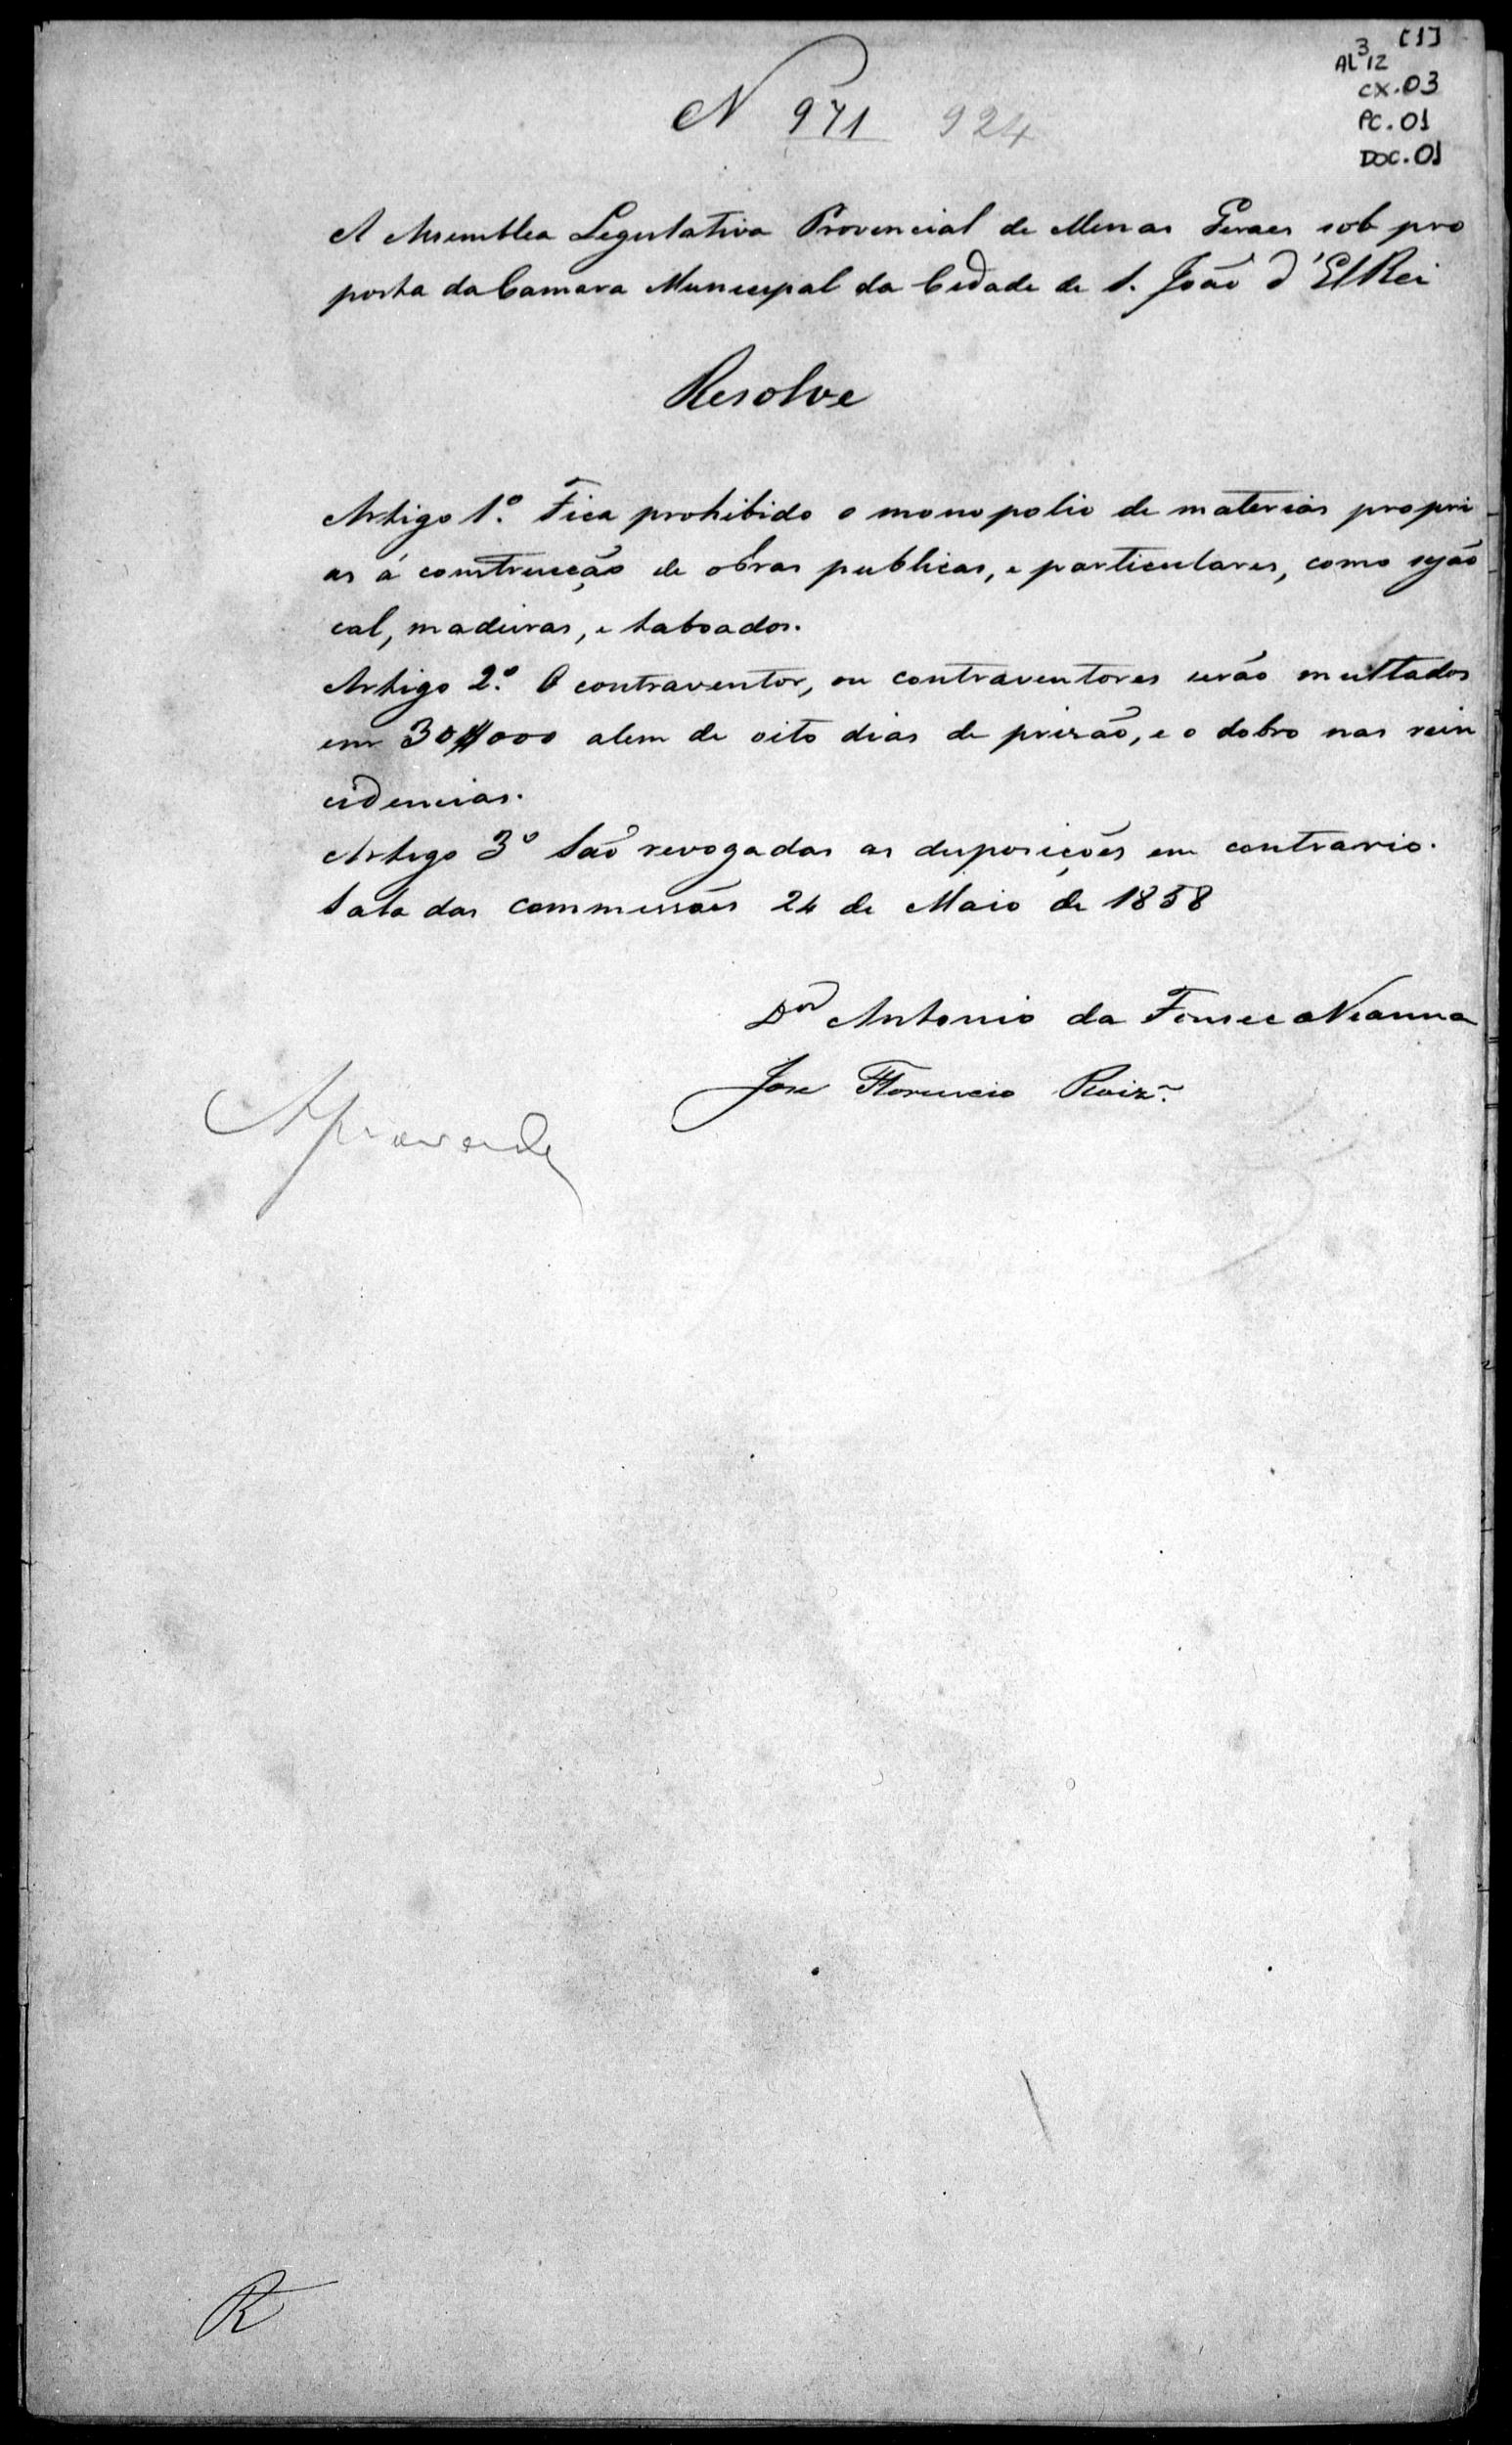 [1]
AL 3/12
CX.03
PC.01
DOC.01
N 971 924
A Assemblea Legislativa Provincial de Minas Geraes sob pro
posta da Camara Municipal da Cidade de S. João d'El Rei
Resolve
Artigo 1.º Fica prohibido o monopolio de materias propri
as á construcção de obras publicas, e particulares, como sejão
cal, madeiras, e taboados.
Artigo 2.º O contraventor, ou contraventores serão multados
em 30$000 alem de oito dias de prizão, e o dobro nas rein
cidencias.
Artigo 3º São revogadas as disposições em contrario.
Sala das commissões 24 de Maio de 1858
Dor Antonio da Fonseca Vianna
Jose Florencio Roiz.
Aprovado
R